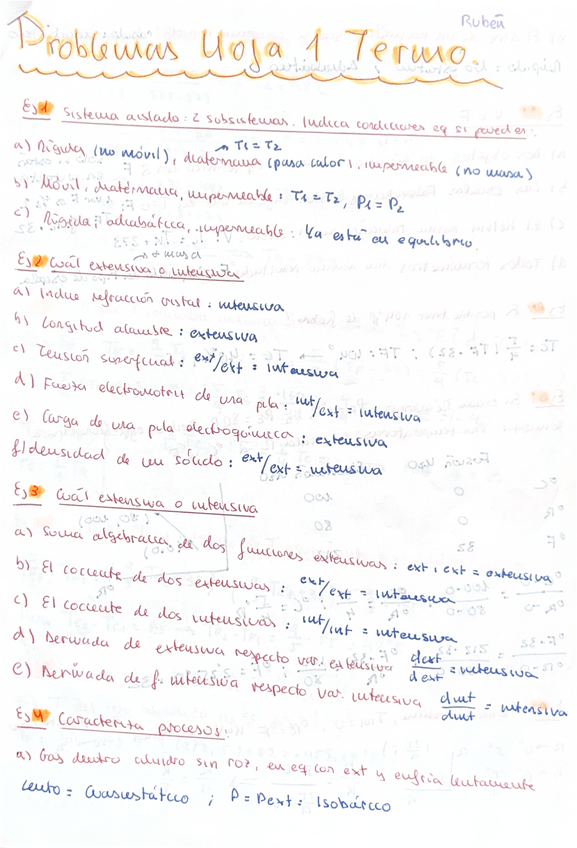 Rubén
Problemas Hoja 1 Termo.
Ej 1 Sistema aislado: 2 subsistemas. Indica condiciones eq si pared es:
→ T1 = T2
a) Rígida (no móvil), diatérmana (pasa calor), impermeable (no masa)
b) Móvil, diatérmana, impermeable: T1 = T2, P1 = P2
c) Rígida, adiabática, impermeable: Ya está en equilibrio.
Ej 2 Cuál extensiva o intensiva
→ + masa
a) Índice refracción cristal: intensiva
b) Longitud alambre: extensiva
c) Tensión superficial: ext/ext = intensiva
d) Fuerza electromotriz de una pila: int/ext = intensiva
e) Carga de una pila electroquímica: extensiva
f) densidad de un sólido: ext/ext = intensiva
Ej 3 Cuál extensiva o intensiva
a) Suma algebraica de dos funciones extensivas: ext + ext = extensiva
b) El cociente de dos extensivas: ext/ext = intensiva
c) El cociente de dos intensivas: int/int = intensiva
d) Derivada de extensiva respecto var. extensiva dext/dext = intensiva
e) Derivada de f. intensiva respecto var. intensiva dint/dint = intensiva
Ej 4 Caracteriza procesos:
a) Gas dentro cilindro sin roz, en eq con ext y enfría lentamente
Lento = Cuasiestático ; P = Pext = Isobárico